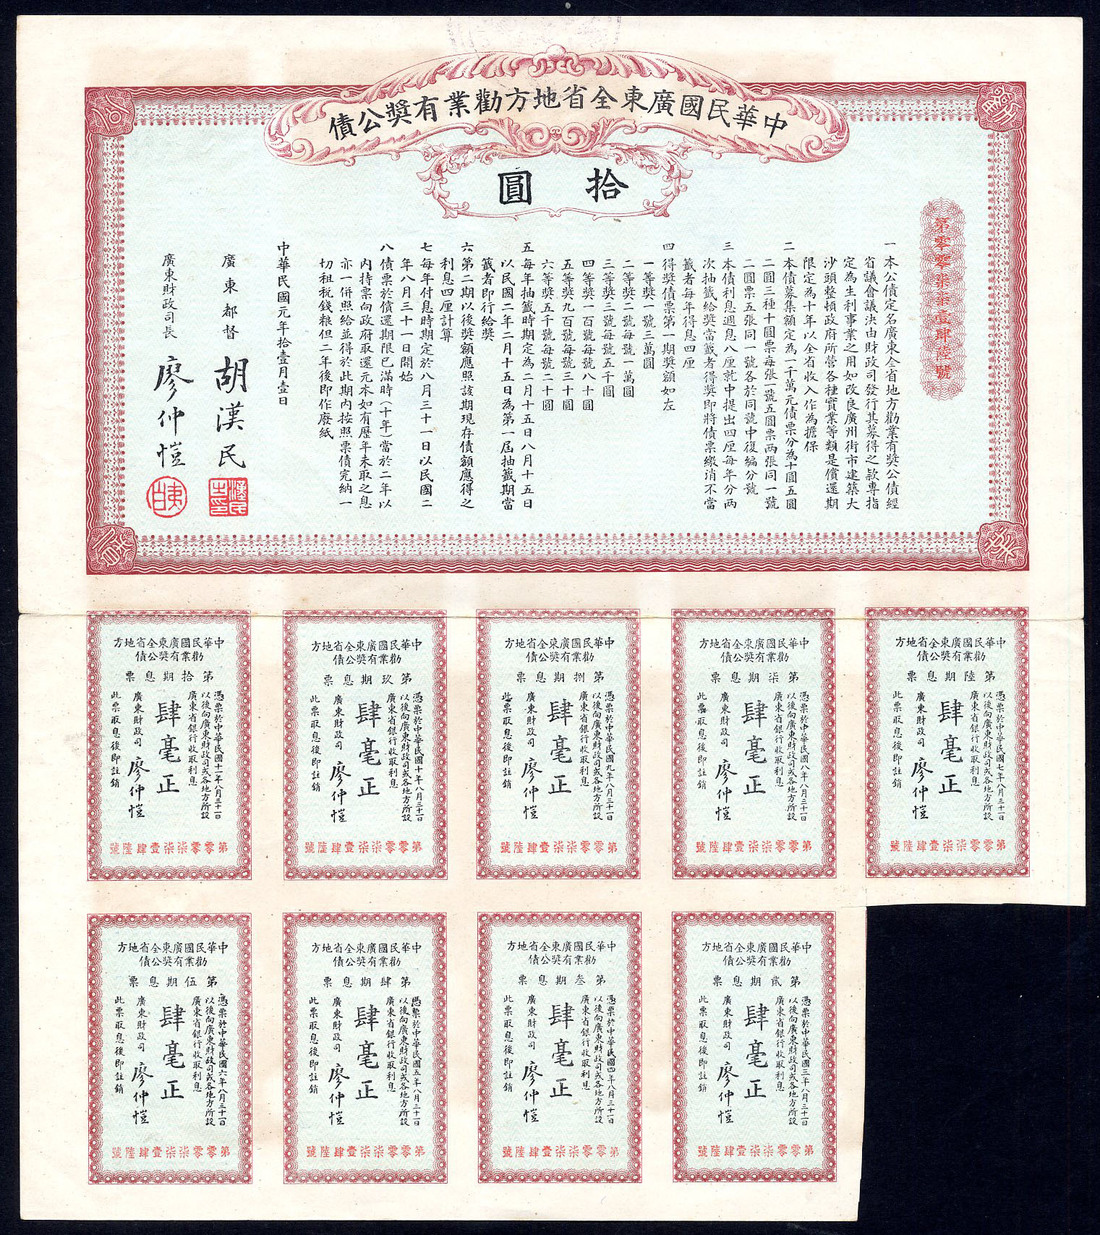 中華民國廣東全省地方勸業有獎公債
拾圓
第零零柒柒壹肆陸號
一本公債定名廣東全省地方勸業有獎公債經
省議會議決由財政司發行其募得之款專指
定為生利事業之用如改良廣州街市建築大
沙頭整頓政府所營各種實業等類是償還期
限定為十年以全省收入作為擔保
二本債募集額定為一千萬元債票分為十圓五圓
二圓三種十圓票每張一號五圓票兩張同一號
二圓票五張同一號各於同號中復編分號
三本債利息週息八厘就中提出四厘每年分兩
次抽籤給獎當籤者得獎即將債票繳消不當
籤者每年得息四厘
四得獎債票第一期獎額如左
一等獎一號三萬圓
二等獎二號每號一萬圓
三等獎三號每號五千圓
四等獎一百號每號八十圓
五等獎九百號每號三十圓
六等獎五千號每號二十圓
五每年抽籤時期定為二月十五日八月十五日
以民國二年二月十五日為第一屆抽籤期當
籤者即行給獎
六第二期以後獎額應照該期現存債額應得之
利息四厘計算
七每年付息時期定於八月三十一日以民國二
年八月三十一日開始
八債票於償還期限已滿時（十年）當於二年以
內持票向政府取還元本如有歷年未取之息
亦一併照給並得於此期內按照票債完納一
切租稅錢粮但二年後即作廢紙
中華民國元年拾壹月壹日
廣東都督 胡漢民
廣東財政司長 廖仲愷
中華民國廣東全省地方
勸業有獎公債
第陸期息票
憑票於中華民國七年八月三十一日
以後向廣東財政司或各地方所設
廣東省銀行收取利息
肆毫正
廣東財政司 廖仲愷
此票取息後即註銷
第零零柒柒壹肆陸號
中華民國廣東全省地方
勸業有獎公債
第柒期息票
憑票於中華民國八年八月三十一日
以後向廣東財政司或各地方所設
廣東省銀行收取利息
肆毫正
廣東財政司 廖仲愷
此票取息後即註銷
第零零柒柒壹肆陸號
中華民國廣東全省地方
勸業有獎公債
第捌期息票
憑票於中華民國九年八月三十一日
以後向廣東財政司或各地方所設
廣東省銀行收取利息
肆毫正
廣東財政司 廖仲愷
此票取息後即註銷
第零零柒柒壹肆陸號
中華民國廣東全省地方
勸業有獎公債
第玖期息票
憑票於中華民國十年八月三十一日
以後向廣東財政司或各地方所設
廣東省銀行收取利息
肆毫正
廣東財政司 廖仲愷
此票取息後即註銷
第零零柒柒壹肆陸號
中華民國廣東全省地方
勸業有獎公債
第拾期息票
憑票於中華民國十一年八月三十一日
以後向廣東財政司或各地方所設
廣東省銀行收取利息
肆毫正
廣東財政司 廖仲愷
此票取息後即註銷
第零零柒柒壹肆陸號
中華民國廣東全省地方
勸業有獎公債
第貳期息票
憑票於中華民國三年八月三十一日
以後向廣東財政司或各地方所設
廣東省銀行收取利息
肆毫正
廣東財政司 廖仲愷
此票取息後即註銷
第零零柒柒壹肆陸號
中華民國廣東全省地方
勸業有獎公債
第叁期息票
憑票於中華民國四年八月三十一日
以後向廣東財政司或各地方所設
廣東省銀行收取利息
肆毫正
廣東財政司 廖仲愷
此票取息後即註銷
第零零柒柒壹肆陸號
中華民國廣東全省地方
勸業有獎公債
第肆期息票
憑票於中華民國五年八月三十一日
以後向廣東財政司或各地方所設
廣東省銀行收取利息
肆毫正
廣東財政司 廖仲愷
此票取息後即註銷
第零零柒柒壹肆陸號
中華民國廣東全省地方
勸業有獎公債
第伍期息票
憑票於中華民國六年八月三十一日
以後向廣東財政司或各地方所設
廣東省銀行收取利息
肆毫正
廣東財政司 廖仲愷
此票取息後即註銷
第零零柒柒壹肆陸號